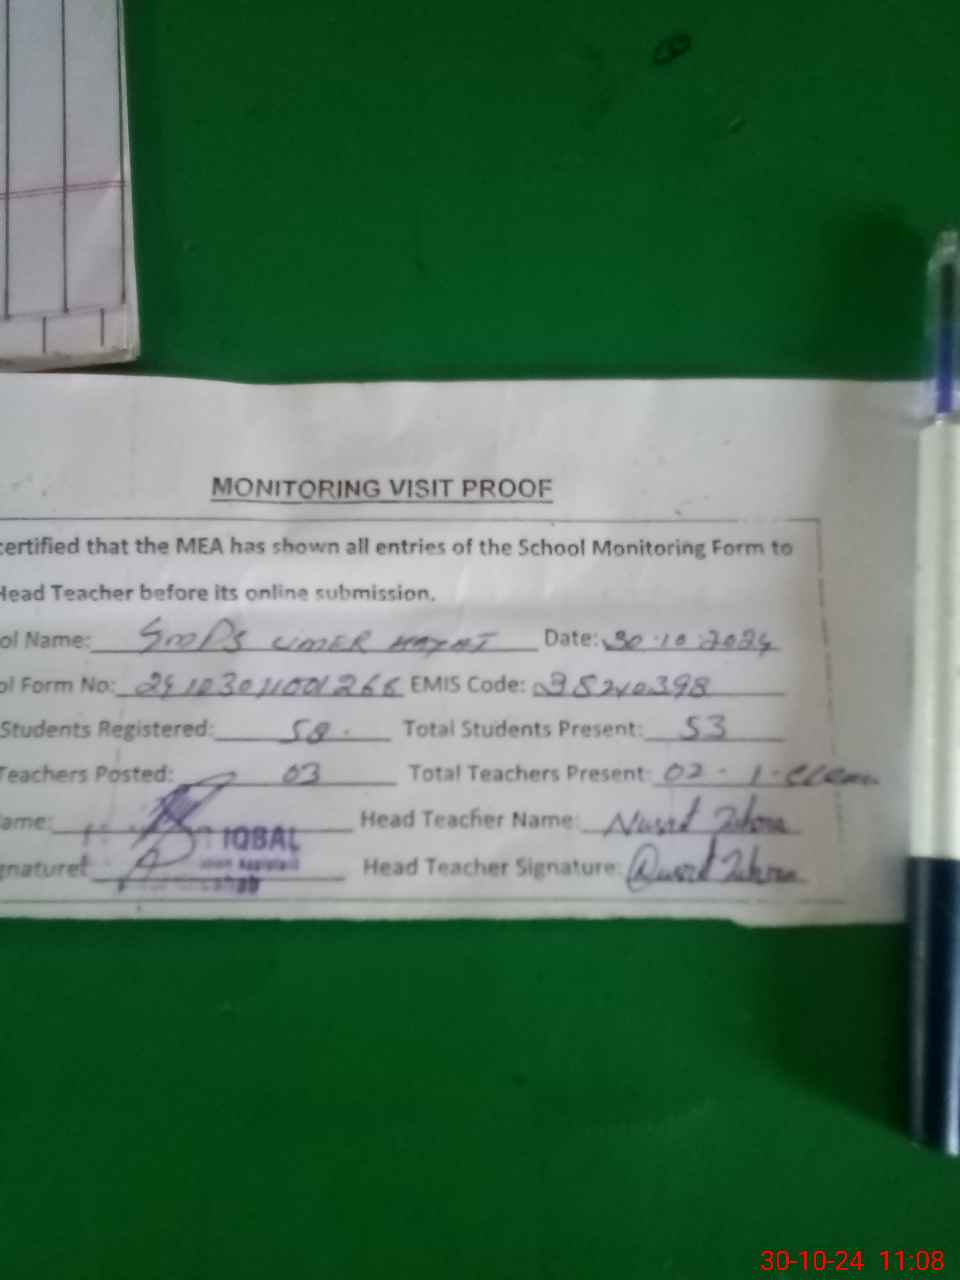 MONITORING VISIT PROOF
certified that the MEA has shown all entries of the School Monitoring Form to
Head Teacher before its online submission.
ol Name: GMPS UMER HAYAT Date: 30.10.2024
ol Form No: 24103011001266 EMIS Code: 38240398
Students Registered: 58. Total Students Present: 53
Teachers Posted: 03 Total Teachers Present: 02
ame: IQBAL Head Teacher Name:
gnature: Head Teacher Signature:
30-10-24 11:08